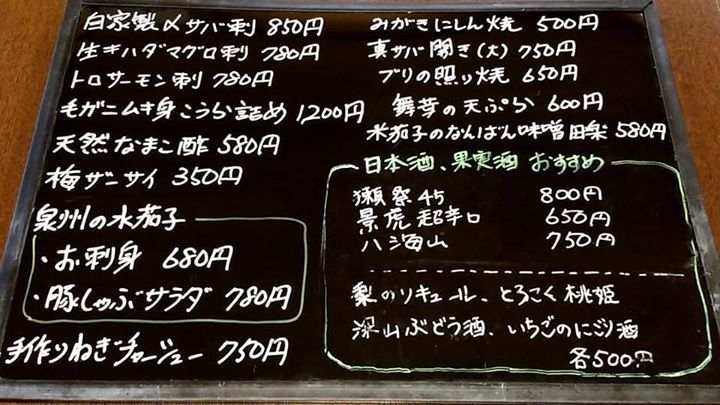 自家製〆サバ刺 850円
生キハダマグロ刺 780円
トロサーモン刺 780円
毛ガニムキ身こうら詰め 1200円
天然なまこ酢 580円
梅ザーサイ 350円
泉州の水茄子
・お刺身 680円
・豚しゃぶサラダ 780円
手作りねぎチャーシュー 750円
みがきにしん焼 500円
真サバ開き(大) 750円
ブリの照り焼 650円
舞茸の天ぷら 600円
米茄子のなんばん味噌田楽 580円
日本酒、果実酒 おすすめ
獺祭45 800円
景虎 超辛口 650円
八海山 750円
梨のリキュール、とろこく桃姫
深山ぶどう酒、いちごのにごり酒
各500円